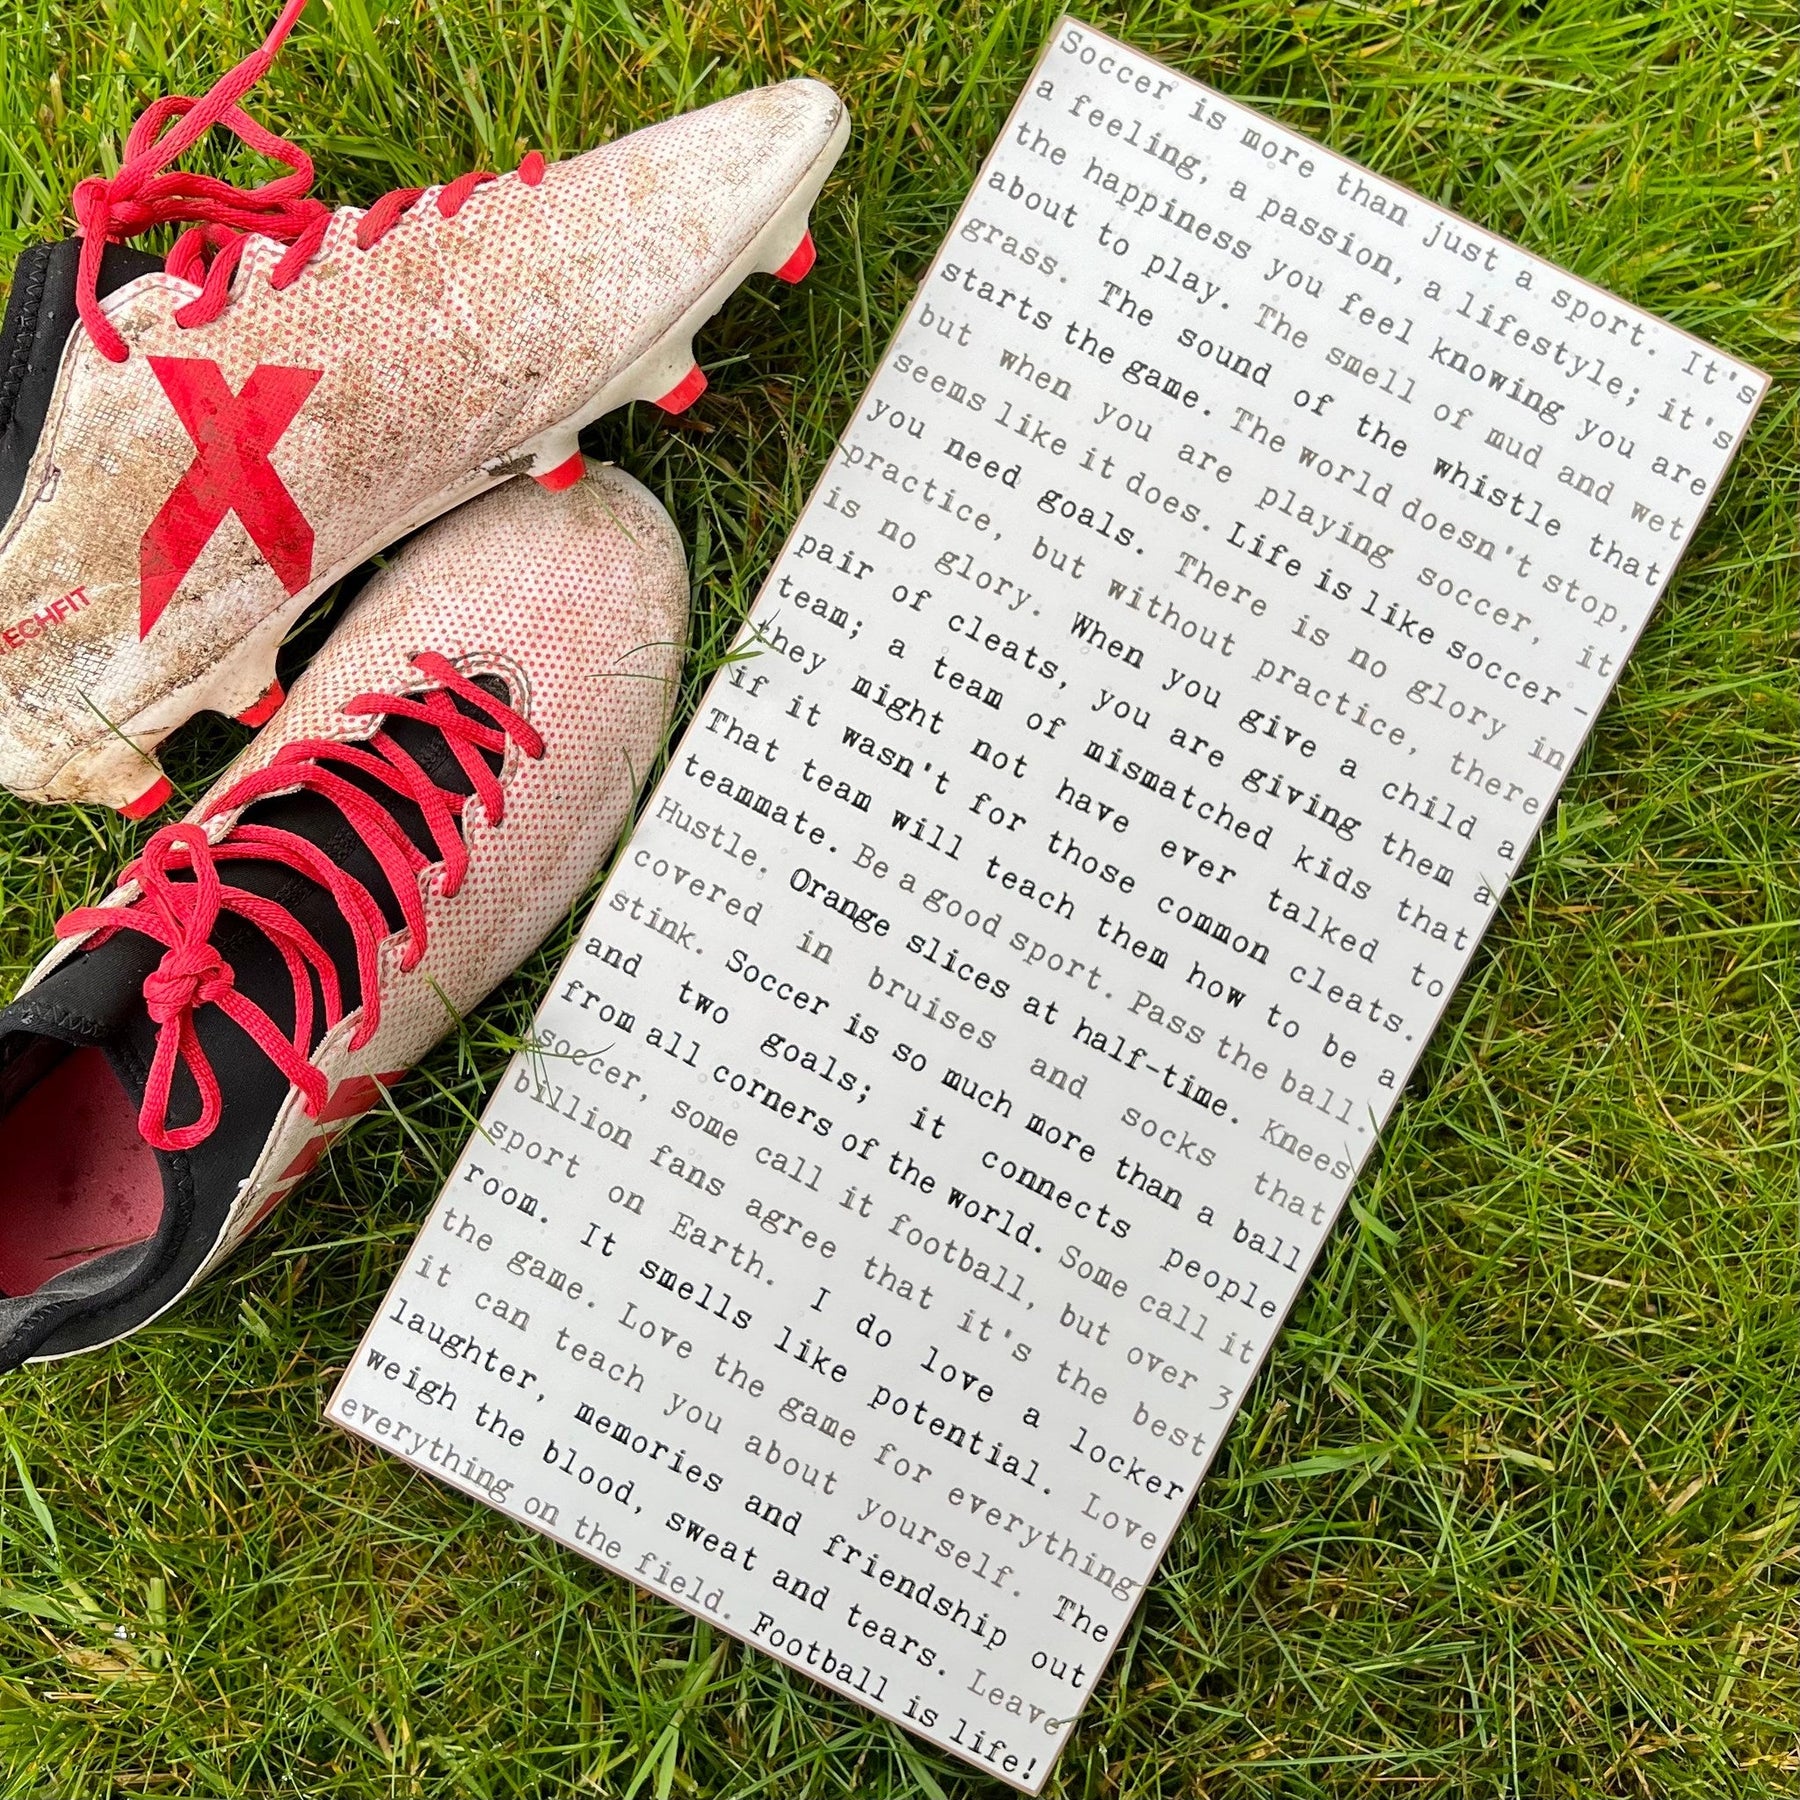 Soccer is more than just a sport. It's
a feeling, a passion, a lifestyle; it's
the happiness you feel knowing you are
about to play. The smell of mud and wet
grass. The sound of the whistle that
starts the game. The world doesn't stop,
but when you are playing soccer, it
seems like it does. Life is like soccer -
you need goals. There is no glory in
practice, but without practice, there
is no glory. When you give a child a
pair of cleats, you are giving them a
team; a team of mismatched kids that
they might not have ever talked to
if it wasn't for those common cleats.
That team will teach them how to be a
teammate. Be a good sport. Pass the ball.
Hustle. Orange slices at half-time. Knees
covered in bruises and socks that
stink. Soccer is so much more than a ball
and two goals; it connects people
from all corners of the world. Some call it
soccer, some call it football, but over 3
billion fans agree that it's the best
sport on Earth. I do love a locker
room. It smells like potential. Love
the game. Love the game for everything
it can teach you about yourself. The
laughter, memories and friendship out
weigh the blood, sweat and tears. Leave
everything on the field. Football is life!
X
ECHFIT